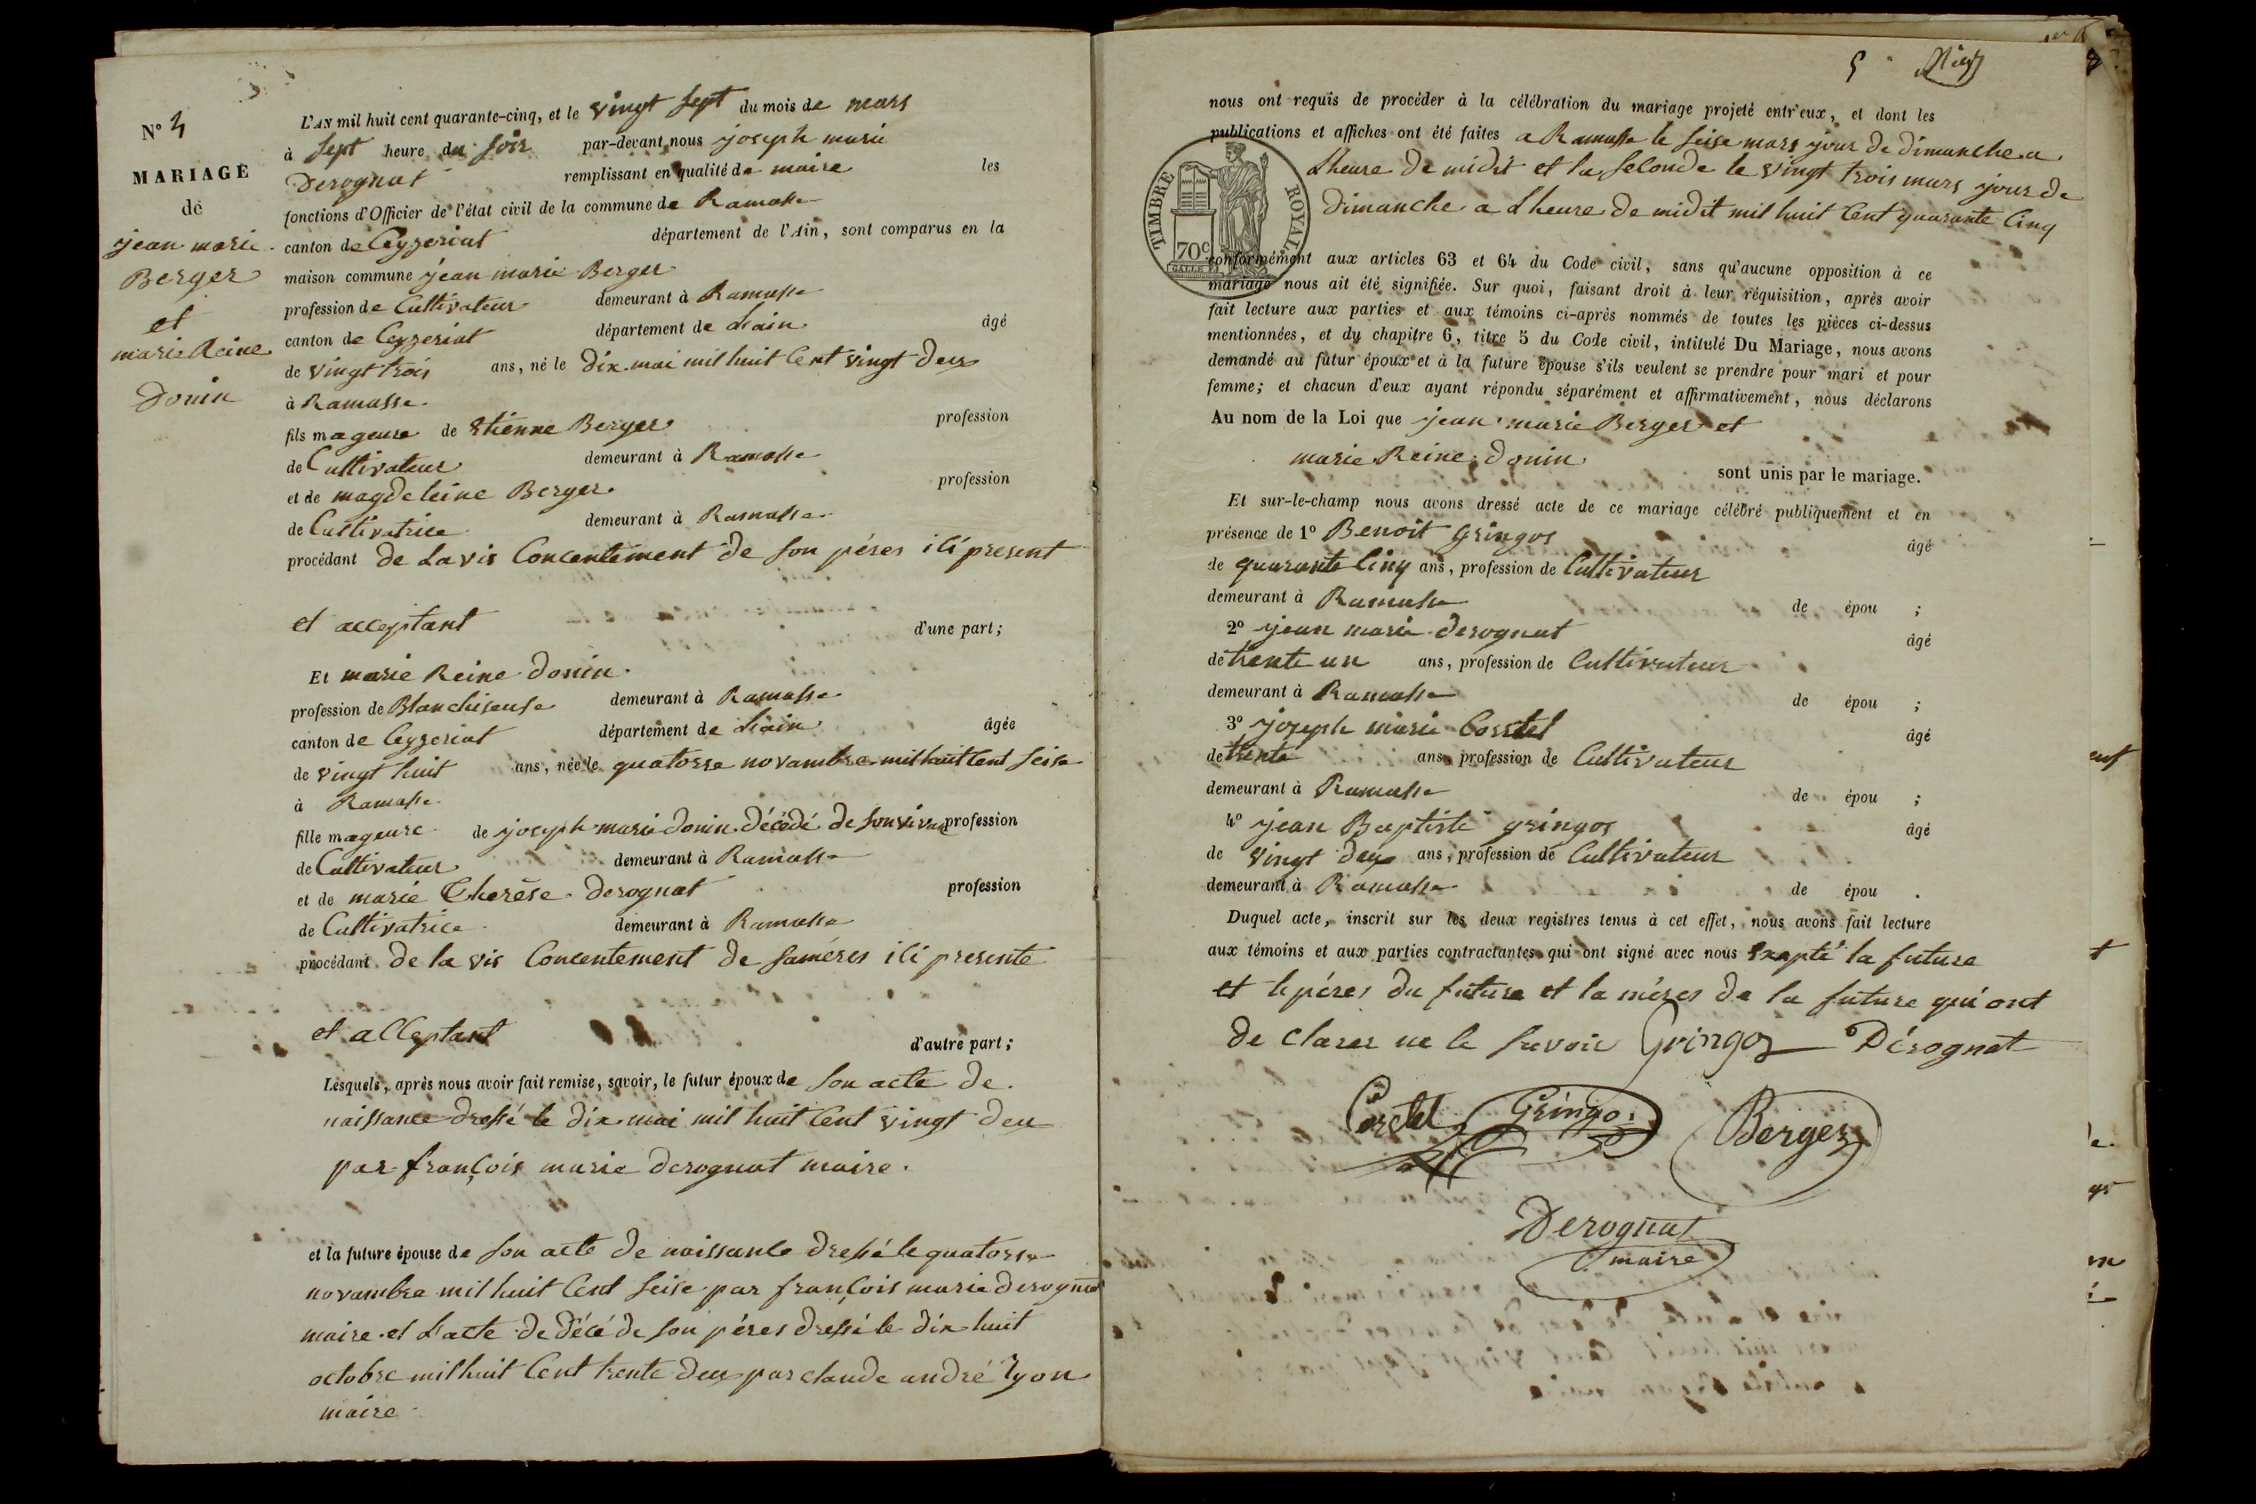 N° 4
MARIAGE
de
jean marie
Berger
et
marie Reine
donin
L'AN mil huit cent quarante-cinq, et le vingt sept du mois de mars
à sept heure du soir par-devant nous joseph marie
Derognat remplissant en qualité de maire les
fonctions d'Officier de l'état civil de la commune de Ramasse
canton de Ceyzeriat département de l'Ain, sont comparus en la
maison commune jean marie Berger
profession de Cultivateur demeurant à Ramasse
canton de Ceyzeriat département de Lain âgé
de vingt trois ans, né le dix mai mil huit Cent vingt deux
à Ramasse
fils mageure de Etienne Berger profession
de Cultivateur demeurant à Ramasse
et de magdeleine Berger profession
de Cultivatrice demeurant à Ramasse
procédant de Lavis Concentement de son péres ici present
et acceptant d'une part;
Et marie Reine donin
profession de Blanchiseuse demeurant à Ramasse
canton de Ceyzeriat département de Lain âgée
de vingt huit ans, née le quatorse novambre mil huit Cent seise
à Ramasse
fille mageure de joseph marie donin décédé de son vivan profession
de Cultivateur demeurant à Ramasse
et de marie Therèse derognat profession
de Cultivatrice demeurant à Ramasse
procédant de la vis Concentement de saméres ici presente
et acceptant d'autre part;
Lesquels, après nous avoir fait remise, savoir, le futur époux de son acte de
naissance dressé le dix mai mil huit Cent vingt deu
par françois marie derognat maire.
et la future épouse de son acte de naissance dressé le quatorse
novambre mil huit Cent seise par françois marie derognat
maire et Lacte de décé de son péres dressé le dix huit
octobre mil huit Cent trente deux par claude andré
maire
5
nous ont requis de procéder à la célébration du mariage projeté entr'eux, et dont les
publications et affiches ont été faites a Ramasse le seise mars jour de dimanche a
Lheure de midit et la seconde le vingt trois mars jour de
dimanche a Lheure de midit mil huit Cent quarante Cinq
TIMBRE ROYAL
70c
conformément aux articles 63 et 64 du Code civil, sans qu'aucune opposition à ce
mariage nous ait été signifiée. Sur quoi, faisant droit à leur réquisition, après avoir
fait lecture aux parties et aux témoins ci-après nommés de toutes les pièces ci-dessus
mentionnées, et du chapitre 6, titre 5 du Code civil, intitulé Du Mariage, nous avons
demandé au futur époux et à la future épouse s'ils veulent se prendre pour mari et pour
femme; et chacun d'eux ayant répondu séparément et affirmativement, nous déclarons
Au nom de la Loi que jean marie Berger et
marie Reine donin sont unis par le mariage.
Et sur-le-champ nous avons dressé acte de ce mariage célébré publiquement et en
présence de 1° Benoit gringos âgé
de quarante Cinq ans, profession de Cultivateur
demeurant à Ramasse de épou ;
2° jean marie derognat âgé
de trente un ans, profession de Cultivateur
demeurant à Ramasse de épou ;
3° joseph marie Corstel âgé
de trente ans, profession de Cultivateur
demeurant à Ramasse de épou ;
4° jean Baptiste gringos âgé
de vingt deux ans, profession de Cultivateur
demeurant à Ramasse de épou .
Duquel acte, inscrit sur les deux registres tenus à cet effet, nous avons fait lecture
aux témoins et aux parties contractantes qui ont signé avec nous Exepté la future
et le péres du future et la méres de la future qui ont
de clarer ne le savoir Gringoz Dérognat
Corstel Gringo Berger
Derognat
maire